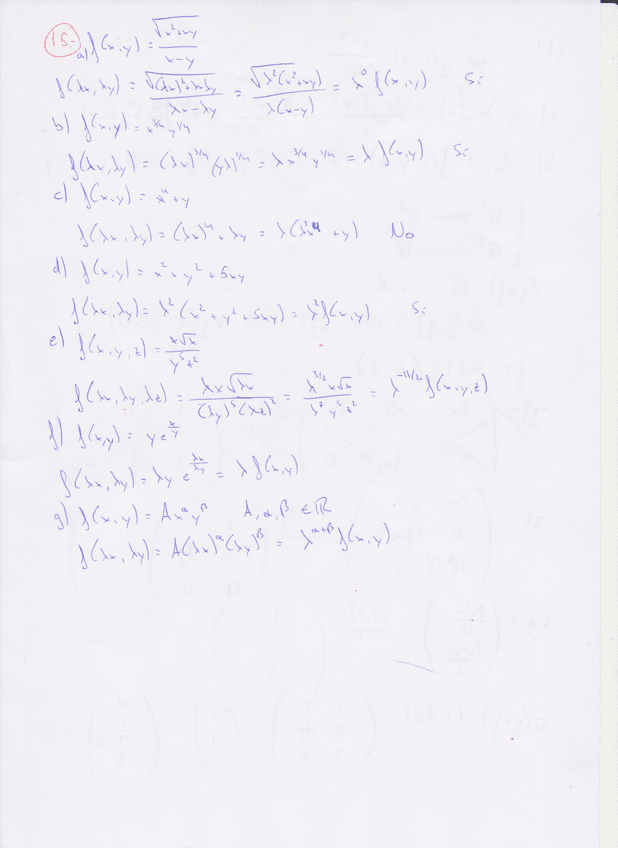 15.-
a) f(x,y) = √(x²+xy) / (x-y)
f(λx,λy) = √((λx)²+λxλy) / (λx-λy) = √(λ²(x²+xy)) / (λ(x-y)) = λ⁰ f(x,y) Si
b) f(x,y) = x^{3/4} y^{1/4}
f(λx,λy) = (λx)^{3/4} (yλ)^{1/4} = λ x^{3/4} y^{1/4} = λ f(x,y) Si
c) f(x,y) = x⁴ + y
f(λx,λy) = (λx)⁴ + λy = λ(λ³x⁴ + y) No
d) f(x,y) = x² + y² + 5xy
f(λx,λy) = λ² (x² + y² + 5xy) = λ² f(x,y) Si
e) f(x,y,z) = x√x / (y⁵z²)
f(λx,λy,λz) = λx√(λx) / ((λy)⁵(λz)²) = λ^{3/2} x√x / (λ⁷ y⁵ z²) = λ^{-11/2} f(x,y,z)
f) f(x,y) = y e^{x/y}
f(λx,λy) = λy e^{λx/λy} = λ f(x,y)
g) f(x,y) = A x^α y^β A, α, β ∈ ℝ
f(λx,λy) = A(λx)^α (λy)^β = λ^{α+β} f(x,y)